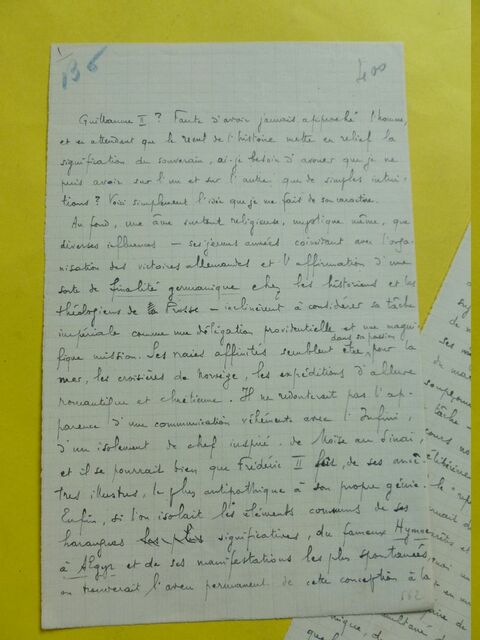 1
B 6
400
Guillaume II ? Faute d'avoir jamais approché l'homme,
et en attendant que le recul de l'histoire mette en relief la
signification du souverain, ai-je besoin d'avouer que je ne
puis avoir sur l'un et sur l'autre que de simples intui-
tions ? Voici simplement l'idée que je me fais de son caractère.
Au fond, une âme surtout religieuse, mystique même, que
diverses influences — ses jeunes années coïncidant avec l'orga-
nisation des victoires allemandes et l'affirmation d'une
sorte de finalité germanique chez les historiens et les
théologiens de la Prusse — inclinèrent à considérer sa tâche
impériale comme une délégation providentielle et une magni-
fique mission. Ses vraies affinités semblent être dans sa passion pour la
mer, les croisières de Norvège, les expéditions d'allure
romantique et chrétienne. Il ne redouterait pas l'ap-
parence d'une communication véhémente avec l'Infini,
d'un isolement de chef inspiré, de Moïse au Sinaï,
et il se pourrait bien que Frédéric II fût, de ses ancê-
tres illustres, le plus antipathique à son propre génie.
Enfin, si l'on isolait les éléments communs de ses
harangues les plus significatives, du fameux Hymne
à Aegyr et de ses manifestations les plus spontanées,
on trouverait l'aveu permanent de cette conception à la
562